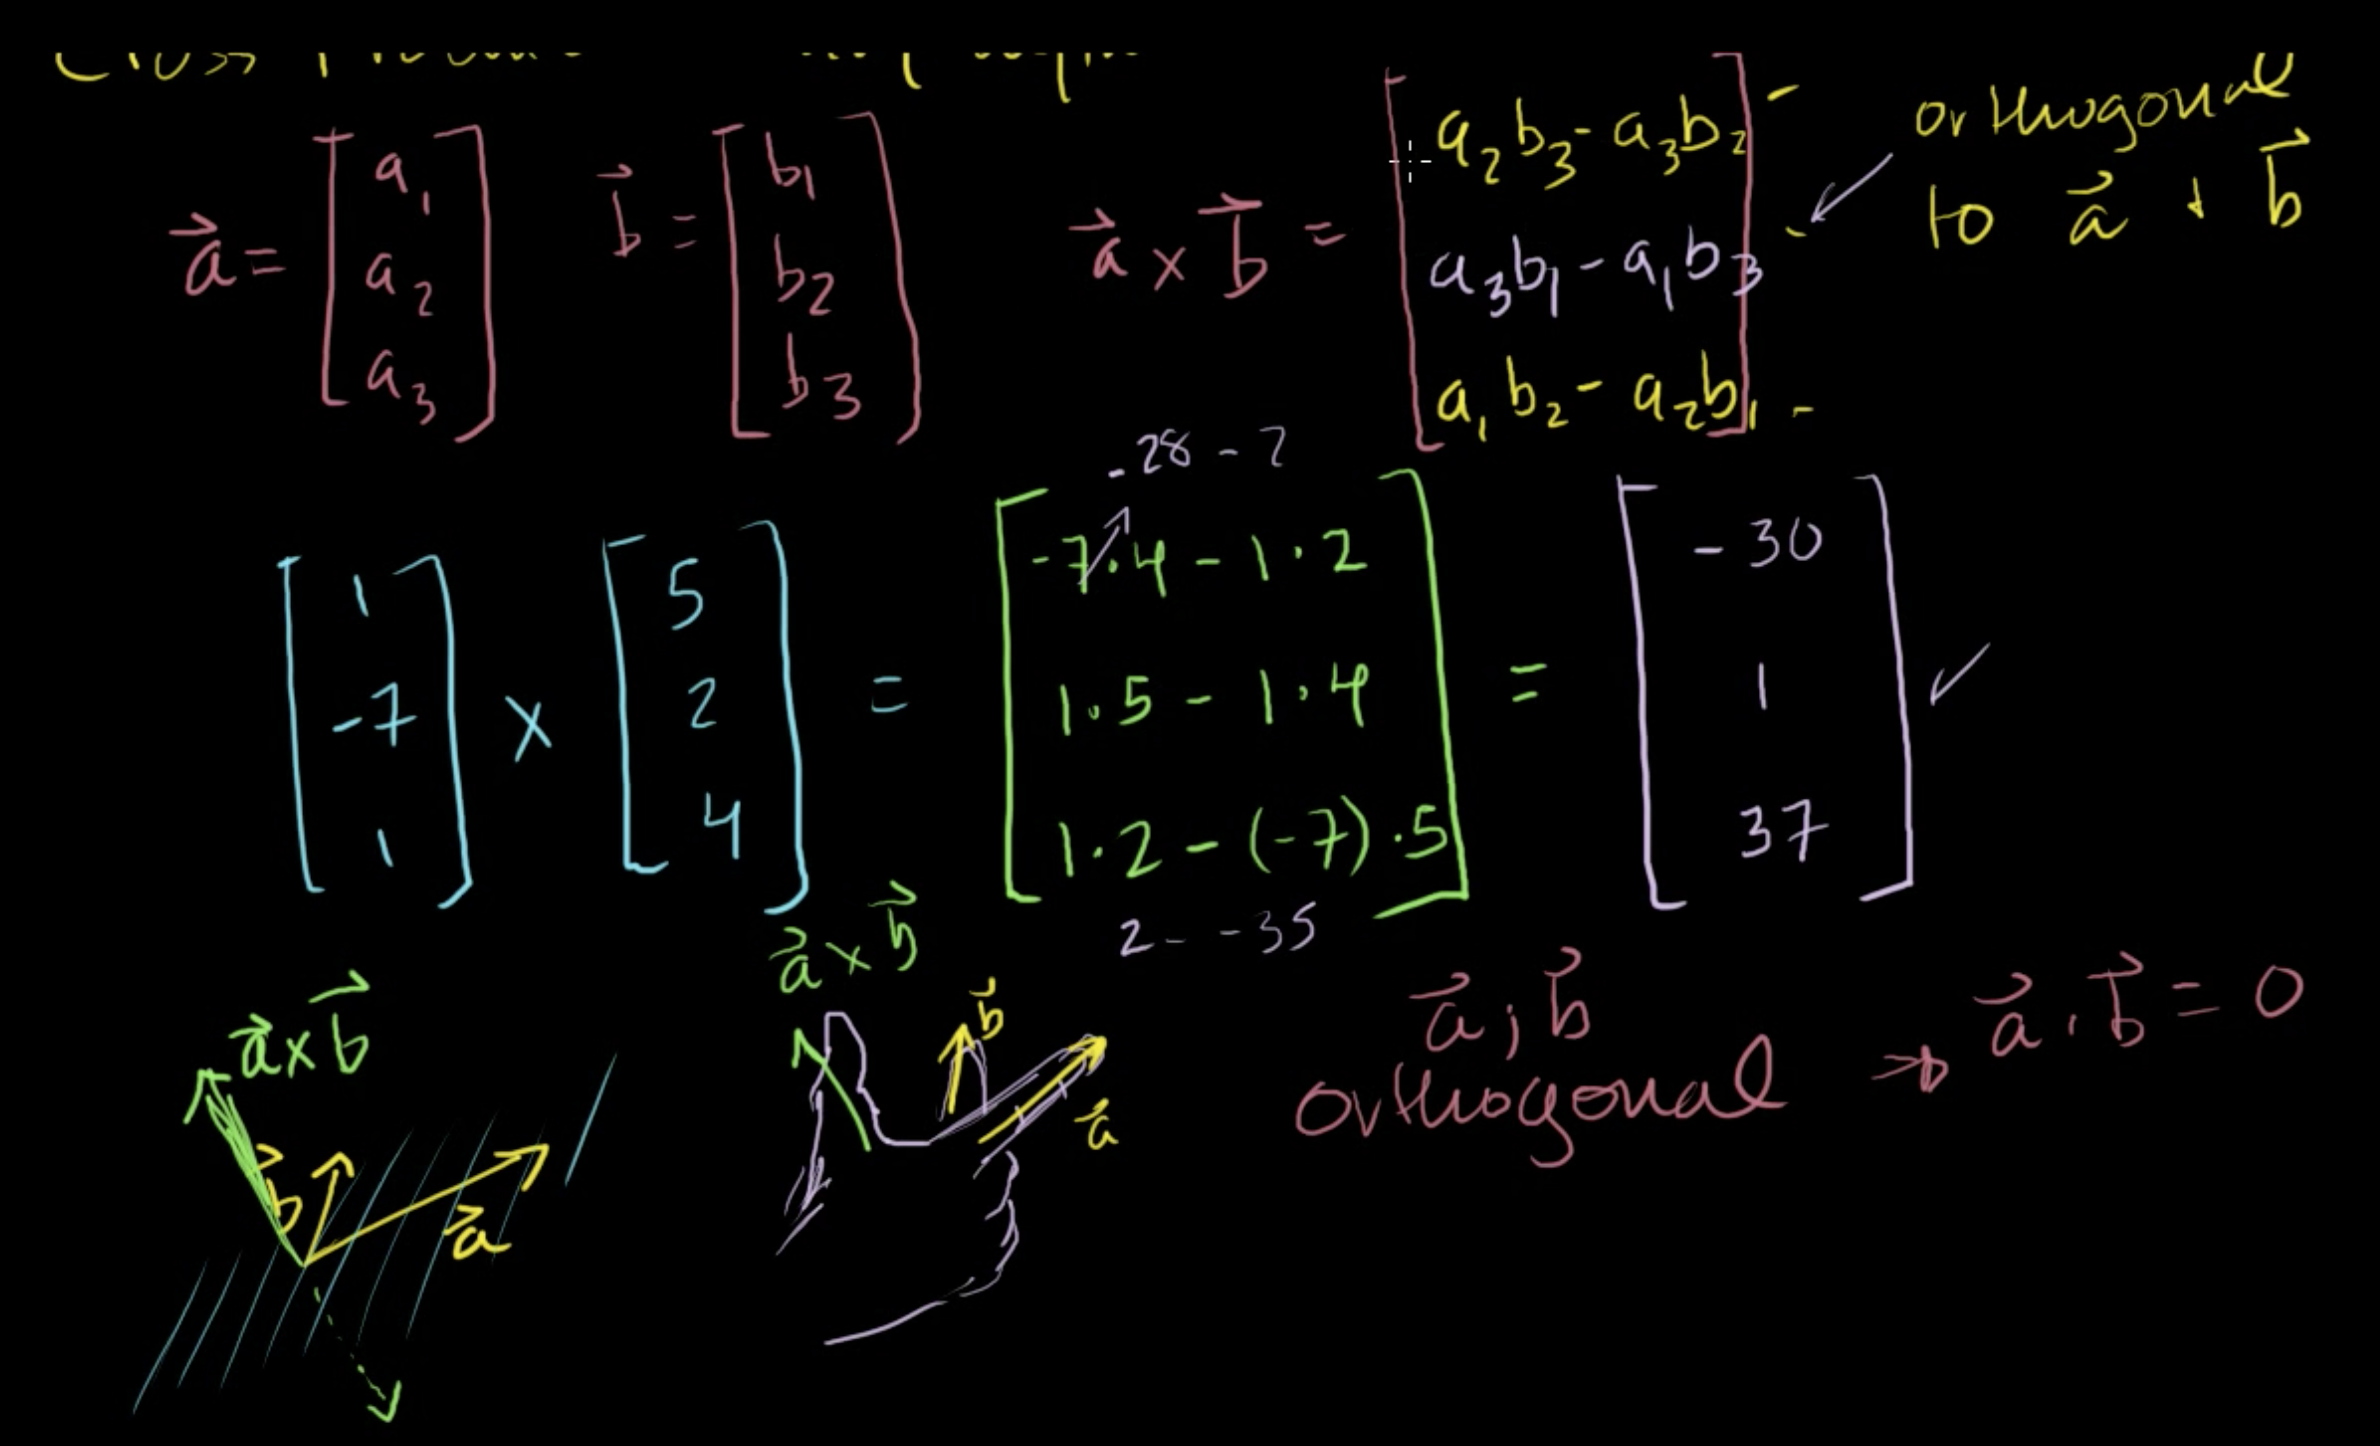 a⃗ = [a₁ a₂ a₃] b⃗ = [b₁ b₂ b₃] a⃗ × b⃗ = [a₂b₃ - a₃b₂
a₃b₁ - a₁b₃
a₁b₂ - a₂b₁]
orthogonal
to a⃗ + b⃗
-28 - 2
[1 -7 1] × [5 2 4] = [-7·4 - 1·2
1·5 - 1·4
1·2 - (-7)·5] = [-30 1 37]
2 - -35
a⃗ × b⃗
a⃗ × b⃗
b⃗
a⃗
b⃗
a⃗
a⃗ ; b⃗
orthogonal → a⃗ · b⃗ = 0